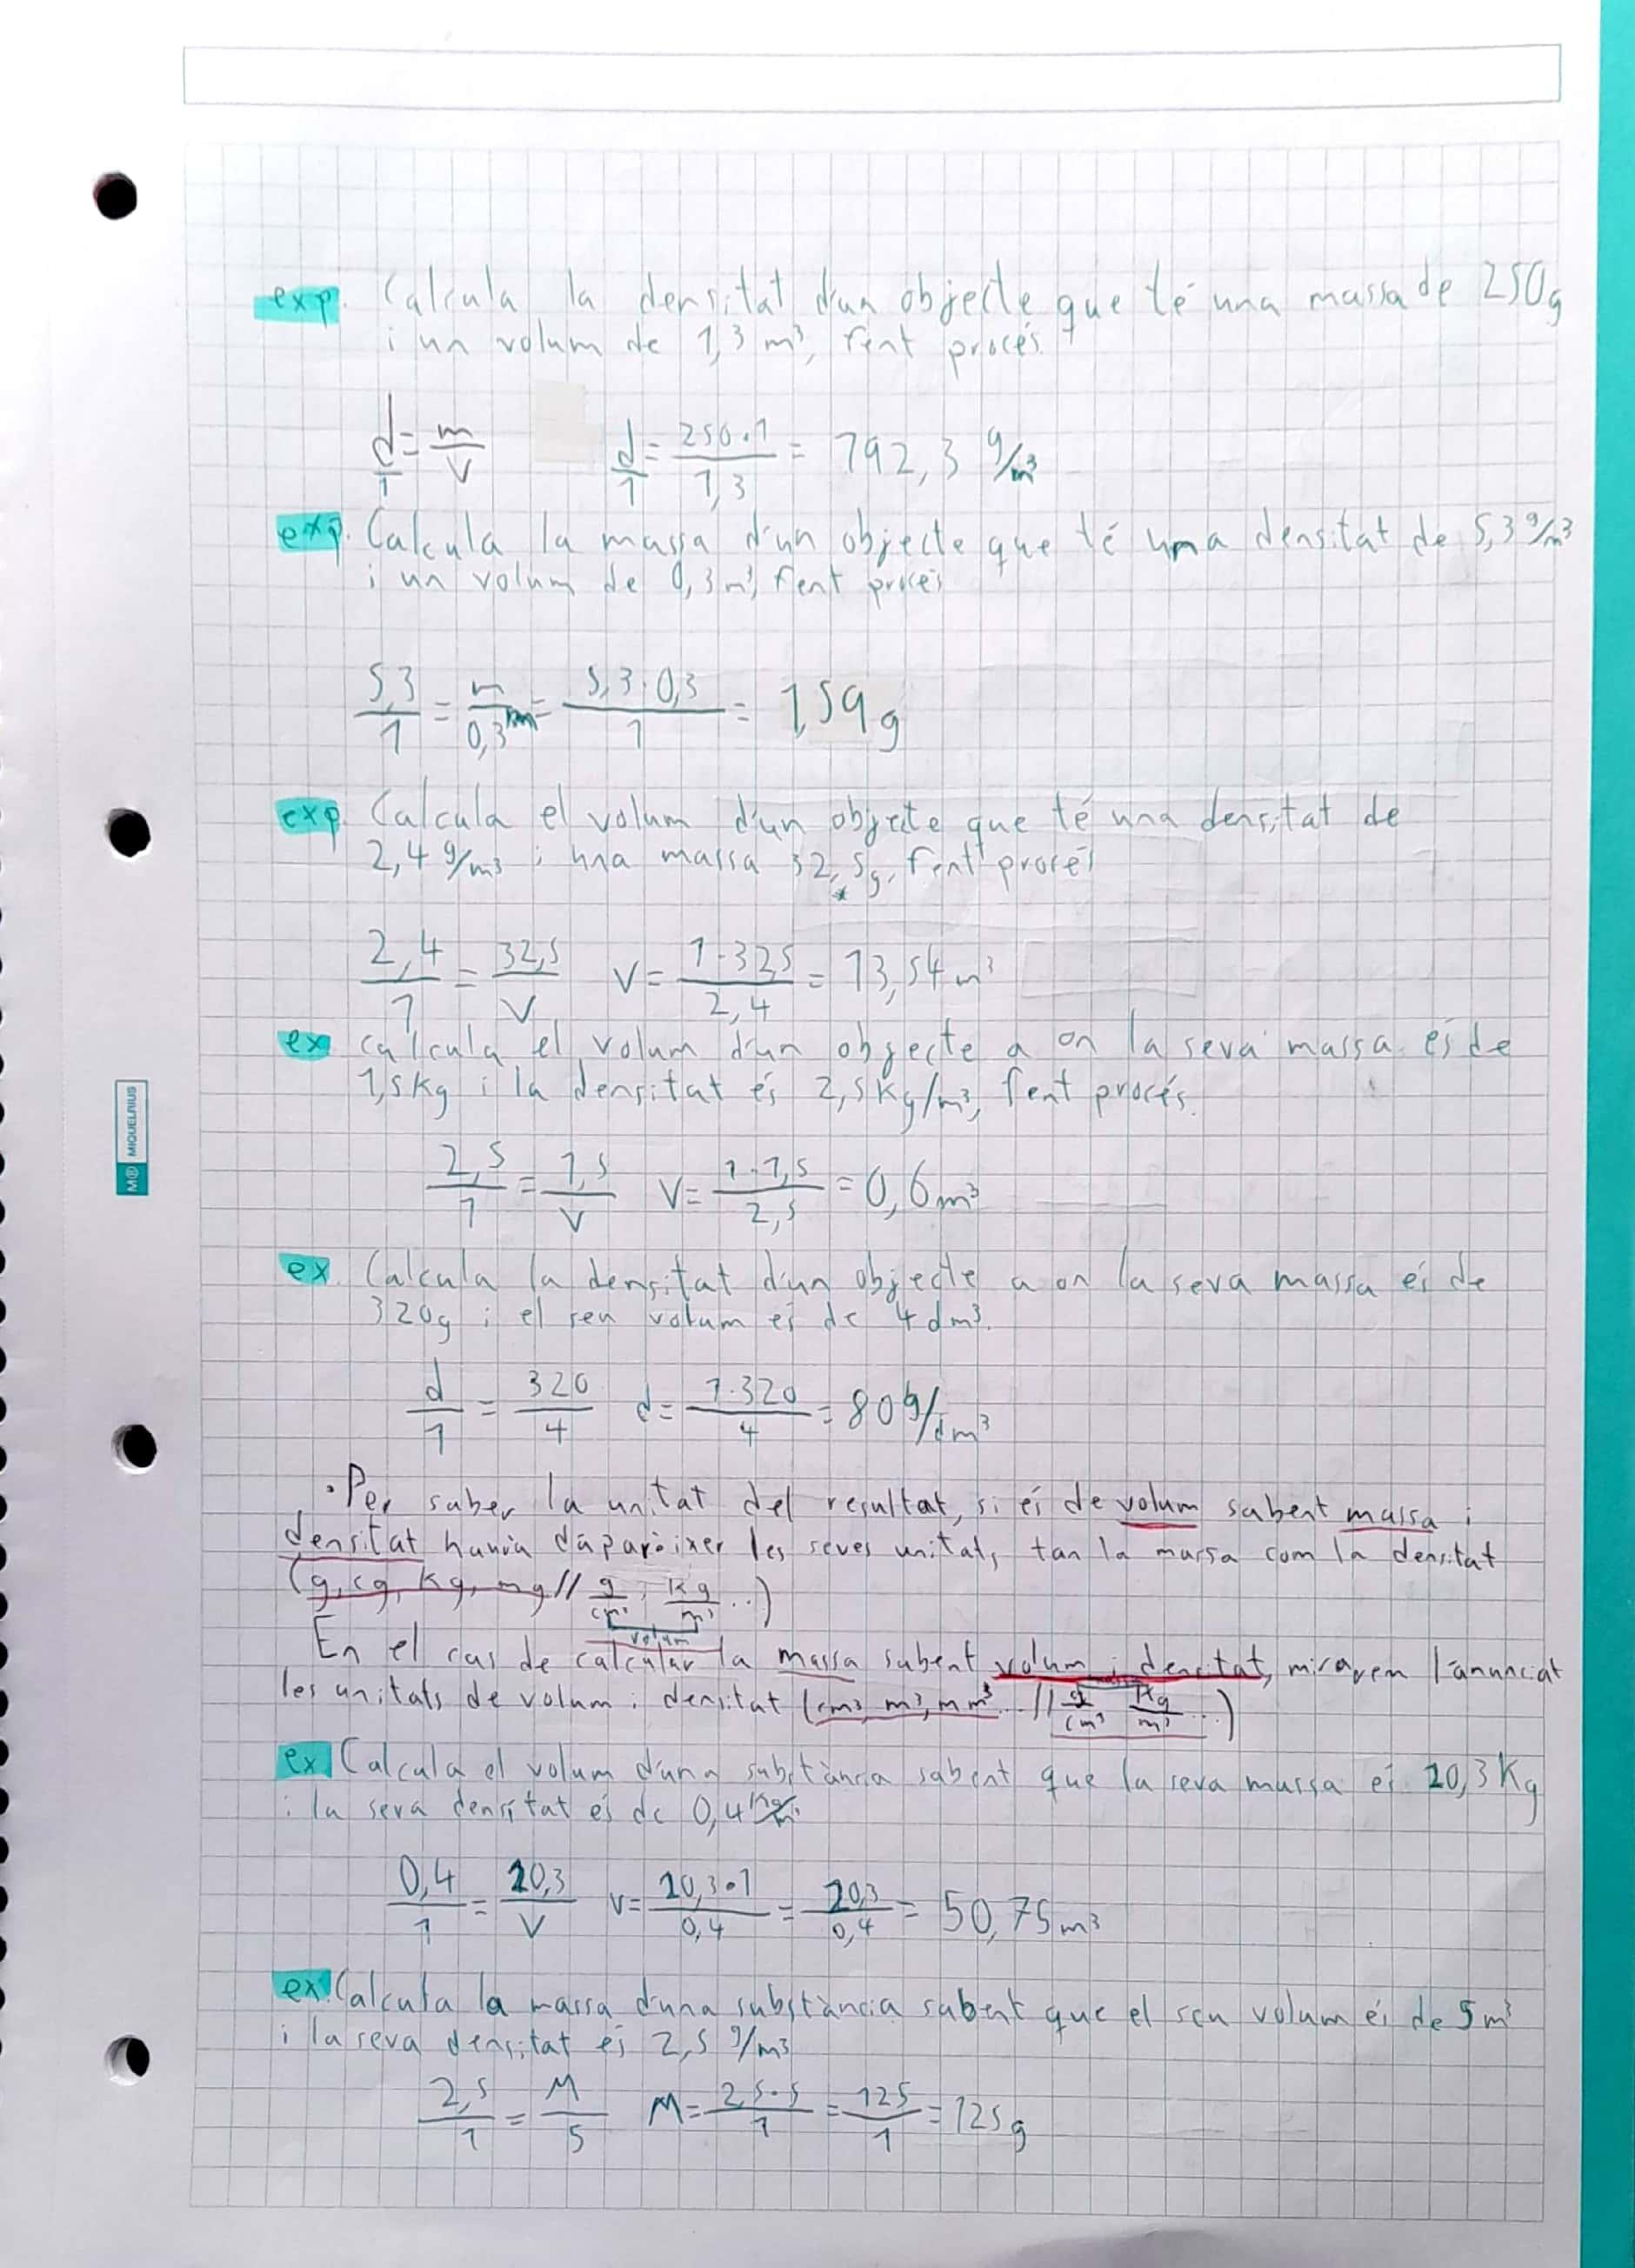 exp. Calcula la densitat d'un objecte que té una massa de 250g
i un volum de 1,3 m³, fent procés.
d/1 = m/V d/1 = 250·1/1,3 = 192,3 g/m³
exp. Calcula la massa d'un objecte que té una densitat de 5,3 g/m³
i un volum de 0,3 m³, fent procés
5,3/1 = m/0,3 = 5,3·0,3/1 = 1,59 g
exp. Calcula el volum d'un objecte que té una densitat de
2,4 g/m³ i una massa 32,5g, fent procés
2,4/1 = 32,5/V V = 1·32,5/2,4 = 13,54 m³
ex calcula el volum d'un objecte a on la seva massa és de
1,5 Kg i la densitat és 2,5 Kg/m³, fent procés.
2,5/1 = 1,5/V V = 1·1,5/2,5 = 0,6 m³
ex. Calcula la densitat d'un objecte a on la seva massa és de
320g i el seu volum és de 4 dm³.
d/1 = 320/4 d = 1·320/4 = 80 g/dm³
• Per saber la unitat del resultat, si és de volum sabent massa i
densitat hauria d'aparèixer les seves unitats, tan la massa com la densitat
(g, cg, Kg, mg // g/cm³, Kg/m³ ...)
volum
En el cas de calcular la massa sabent volum i densitat, mirarem l'anunciat
les unitats de volum i densitat (cm³, m³, mm³ ... // g/cm³ Kg/m³ ...)
ex Calcula el volum d'una substància sabent que la seva massa és 20,3 Kg
i la seva densitat és de 0,4 Kg/m³.
0,4/1 = 20,3/V V = 20,3·1/0,4 = 20,3/0,4 = 50,75 m³
ex. Calcula la massa d'una substància sabent que el seu volum és de 5 m³
i la seva densitat és 2,5 g/m³
2,5/1 = M/5 M = 25·5/1 = 125/1 = 125 g
MR MIQUELRIUS